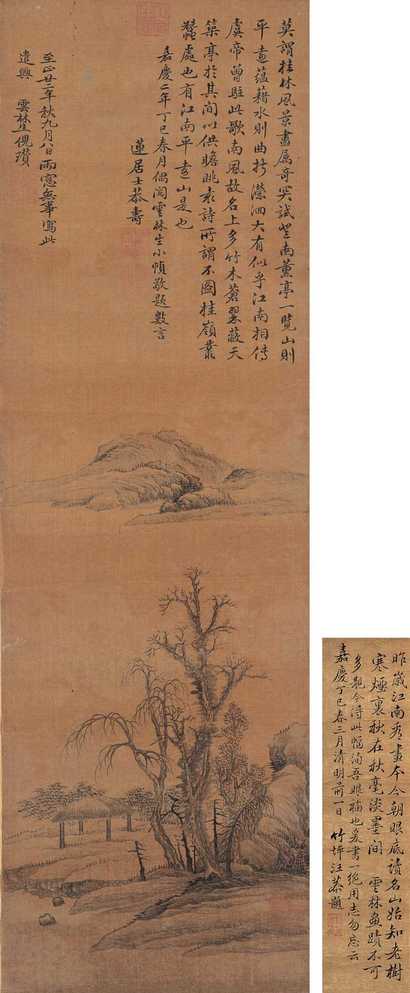 莫謂桂林風景盡属奇突試望南薰亭一覽山則
平遠蕴藉水則曲折瀠洄大有似乎江南相傳
虞帝曾駐此歌南風故名上多竹木蒼翠蔽天
築亭於其間以供瞻眺表詩所謂不圖桂嶺叢
叢處也有江南平遠山是也
嘉慶二年丁巳春月偶閱雲林生小幀敬題數言
蓮居士恭壽
至正廿二年秋九月八日雨窓無事寫此
遣興 雲林倪瓚
昨歲江南秀畫本今朝眼底讀名山始知老樹
寒煙裏秋在秋毫淡墨間 雲林畫蹟不可
多覯今得此幅洵吾眼福也爰書一絶用志勿忘云
嘉慶丁巳春三月清明前一日 竹坪汪恭題